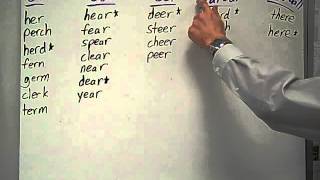 her hear* deer* there
perch fear steer here*
herd* spear cheer
fern clear peer
germ near
clerk dear*
term year